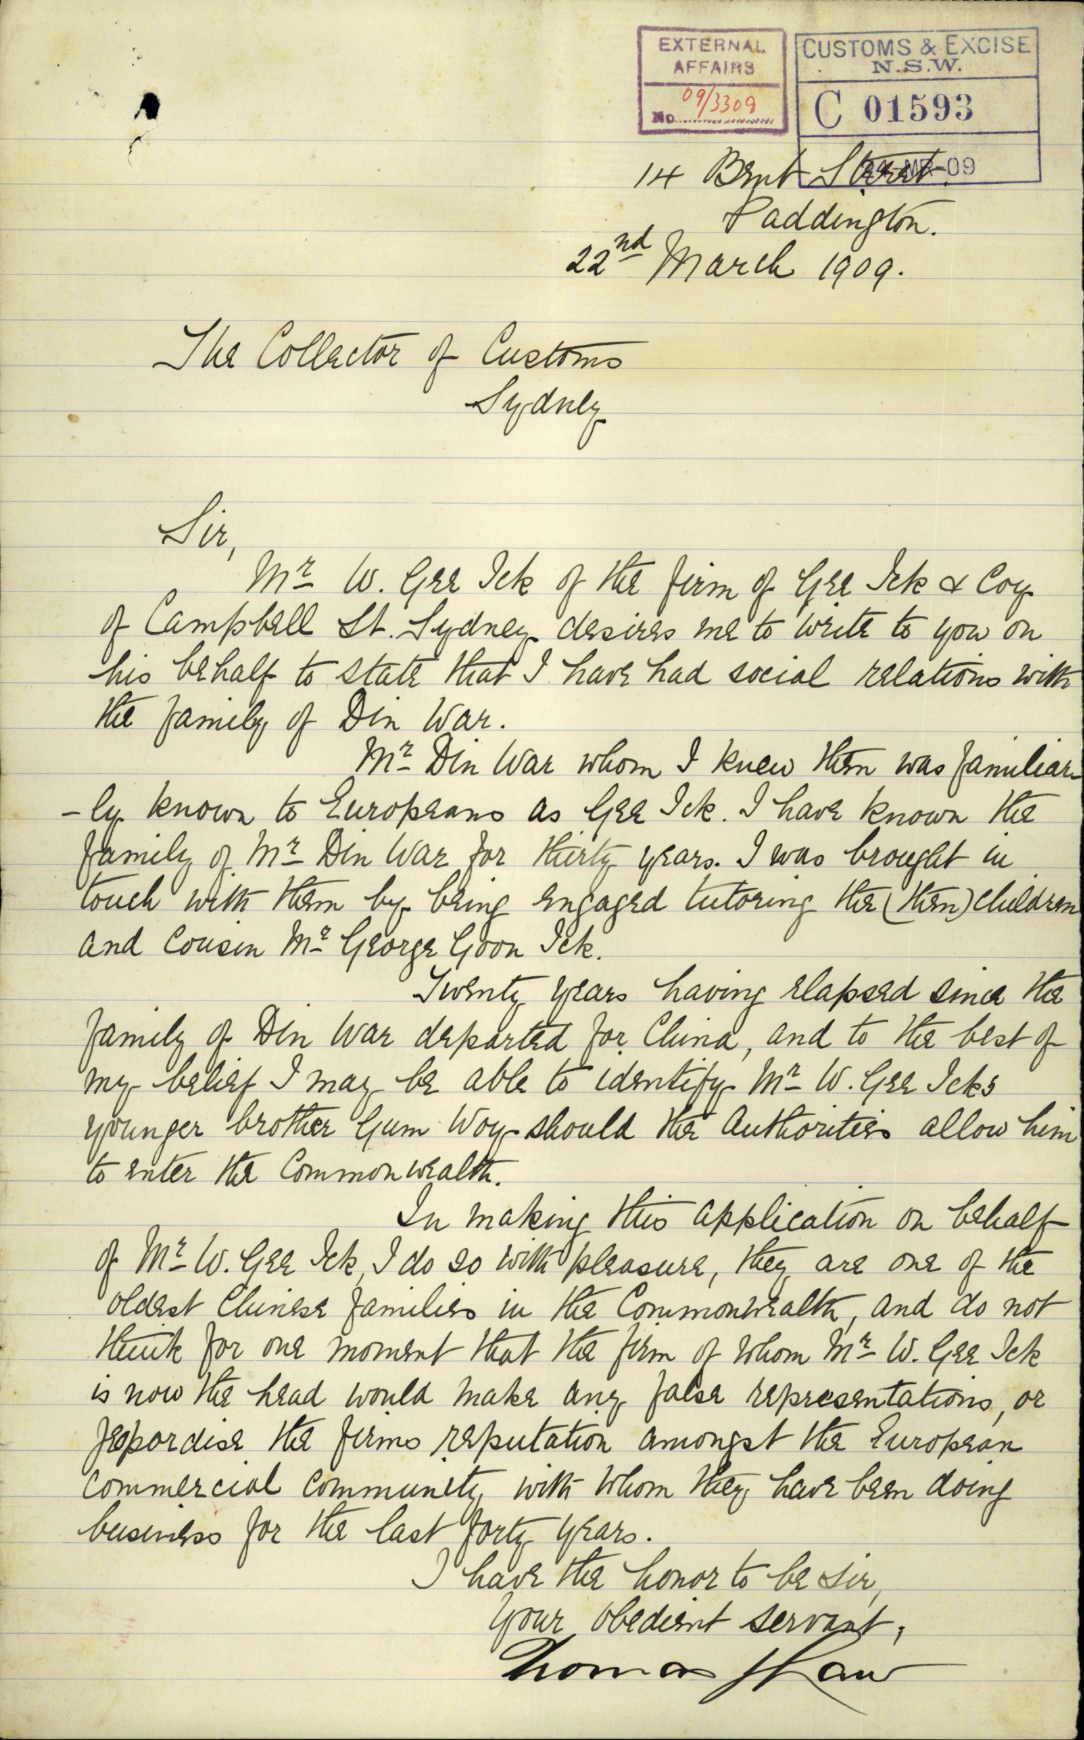 EXTERNAL
AFFAIRS
No 09/3309
CUSTOMS & EXCISE
N.S.W.
C 01593
MR-09
14 Bent Street.
Paddington.
22nd March 1909.
The Collector of Customs
Sydney
Sir,
Mr W. Gee Ick of the firm of Gee Ick & Coy
of Campbell St. Sydney desires me to write to you on
his behalf to state that I have had social relations with
the family of Din War.
Mr Din War whom I knew then was familiar-
-ly known to Europeans as Gee Ick. I have known the
family of Mr Din War for thirty years. I was brought in
touch with them by being engaged tutoring the (then) children
and cousin Mr George Goon Ick.
Twenty years having elapsed since the
family of Din War departed for China, and to the best of
my belief I may be able to identify Mr W. Gee Icks
younger brother Gum Woy should the Authorities allow him
to enter the Commonwealth.
In making this application on behalf
of Mr W. Gee Ick, I do so with pleasure, they are one of the
oldest Chinese families in the Commonwealth, and do not
think for one moment that the firm of whom Mr W. Gee Ick
is now the head would make any false representations, or
jeopardise the firms reputation amongst the European
commercial community with whom they have been doing
business for the last forty years.
I have the honor to be Sir,
Your obedient servant,
Thomas